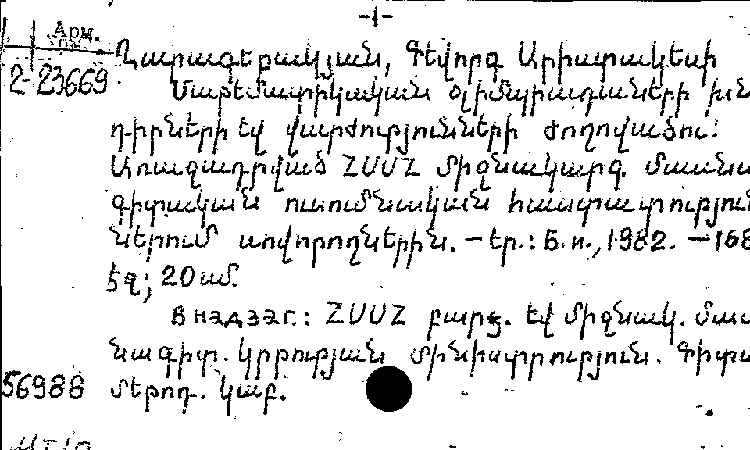 -1-
Арм.
2-23669
Ղարագեբակյան, Գևորգ Արիստակեսի
Մաթեմատիկական օլիմպիադաների խն
դիրների եվ վարժությունների ժողովածու:
Առաջադրված ՀՍՍՀ միջնակարգ. մասնա
գիտական ուսումնական հաստատություն
ներում սովորողներին. – Եր.: Б.и., 1982. – 168
էջ; 20 սմ.
В надзаг.: ՀՍՍՀ բարձ. եվ միջնակ. մաս
նագիտ. կրթության մինիստրություն. Գիտա
56988 մեթոդ. կաբ.